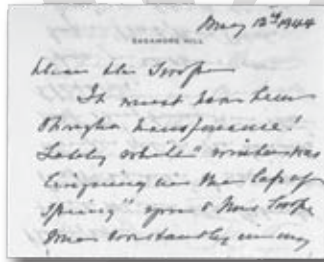 May 12th 1944
SAGAMORE HILL
Dear Mr Troope
It must have been
!
Lately while "winter was
lingering in the lap of
Spring" you & Mrs Troope
were constantly in my